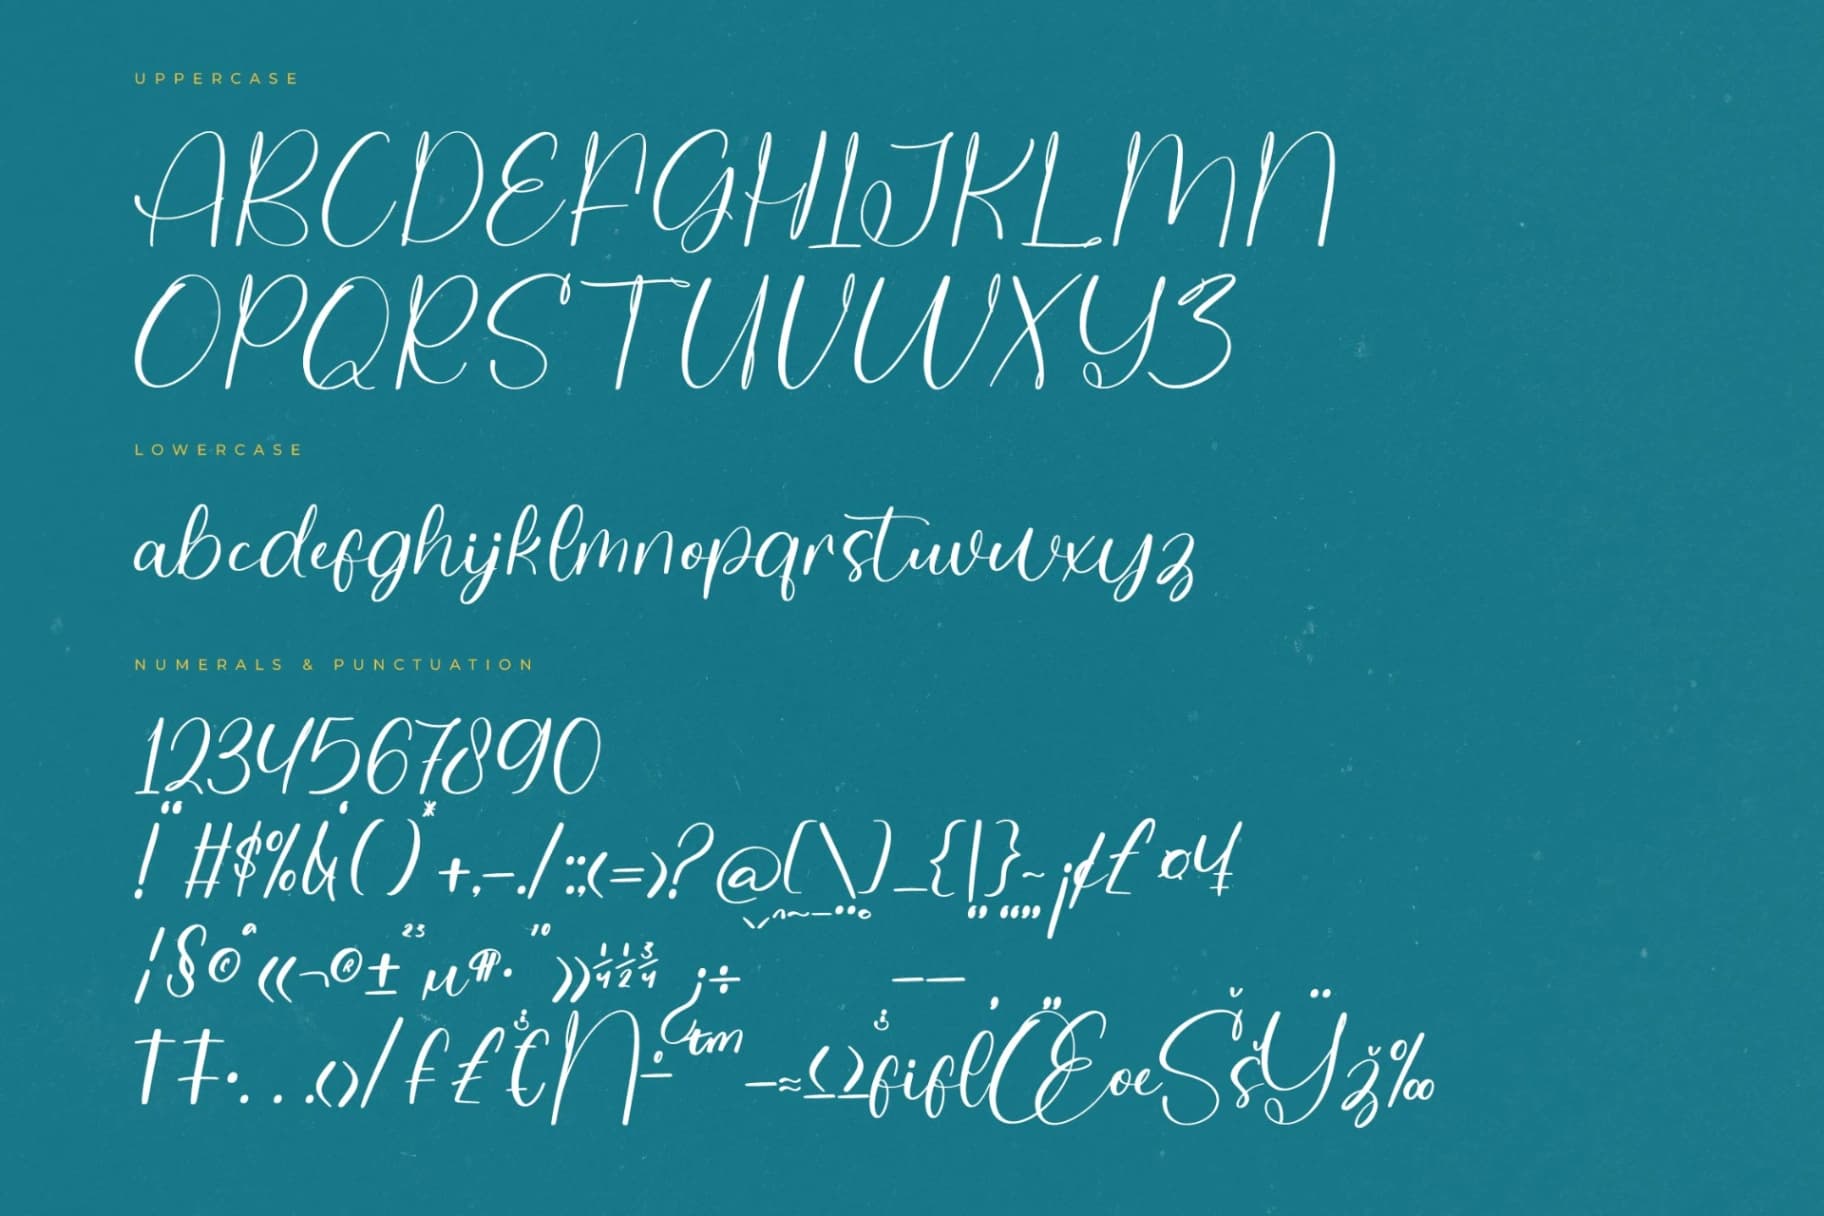 UPPERCASE
ABCDEFGHIJKLMN
OPQRSTUVWXYZ
LOWERCASE
abcdefghijklmnopqrstuvwxyz
NUMERALS & PUNCTUATION
1234567890
!"#$%&'()*+,-./:;‹=›?@[\]_{|}~¡¢£¤¥
¦§©ª«¬®±²³µ¶·¹º»¼½¾¿÷
†‡•...‹›/₣₤€™−≈≤≥fiflŒœŠšŸž‰